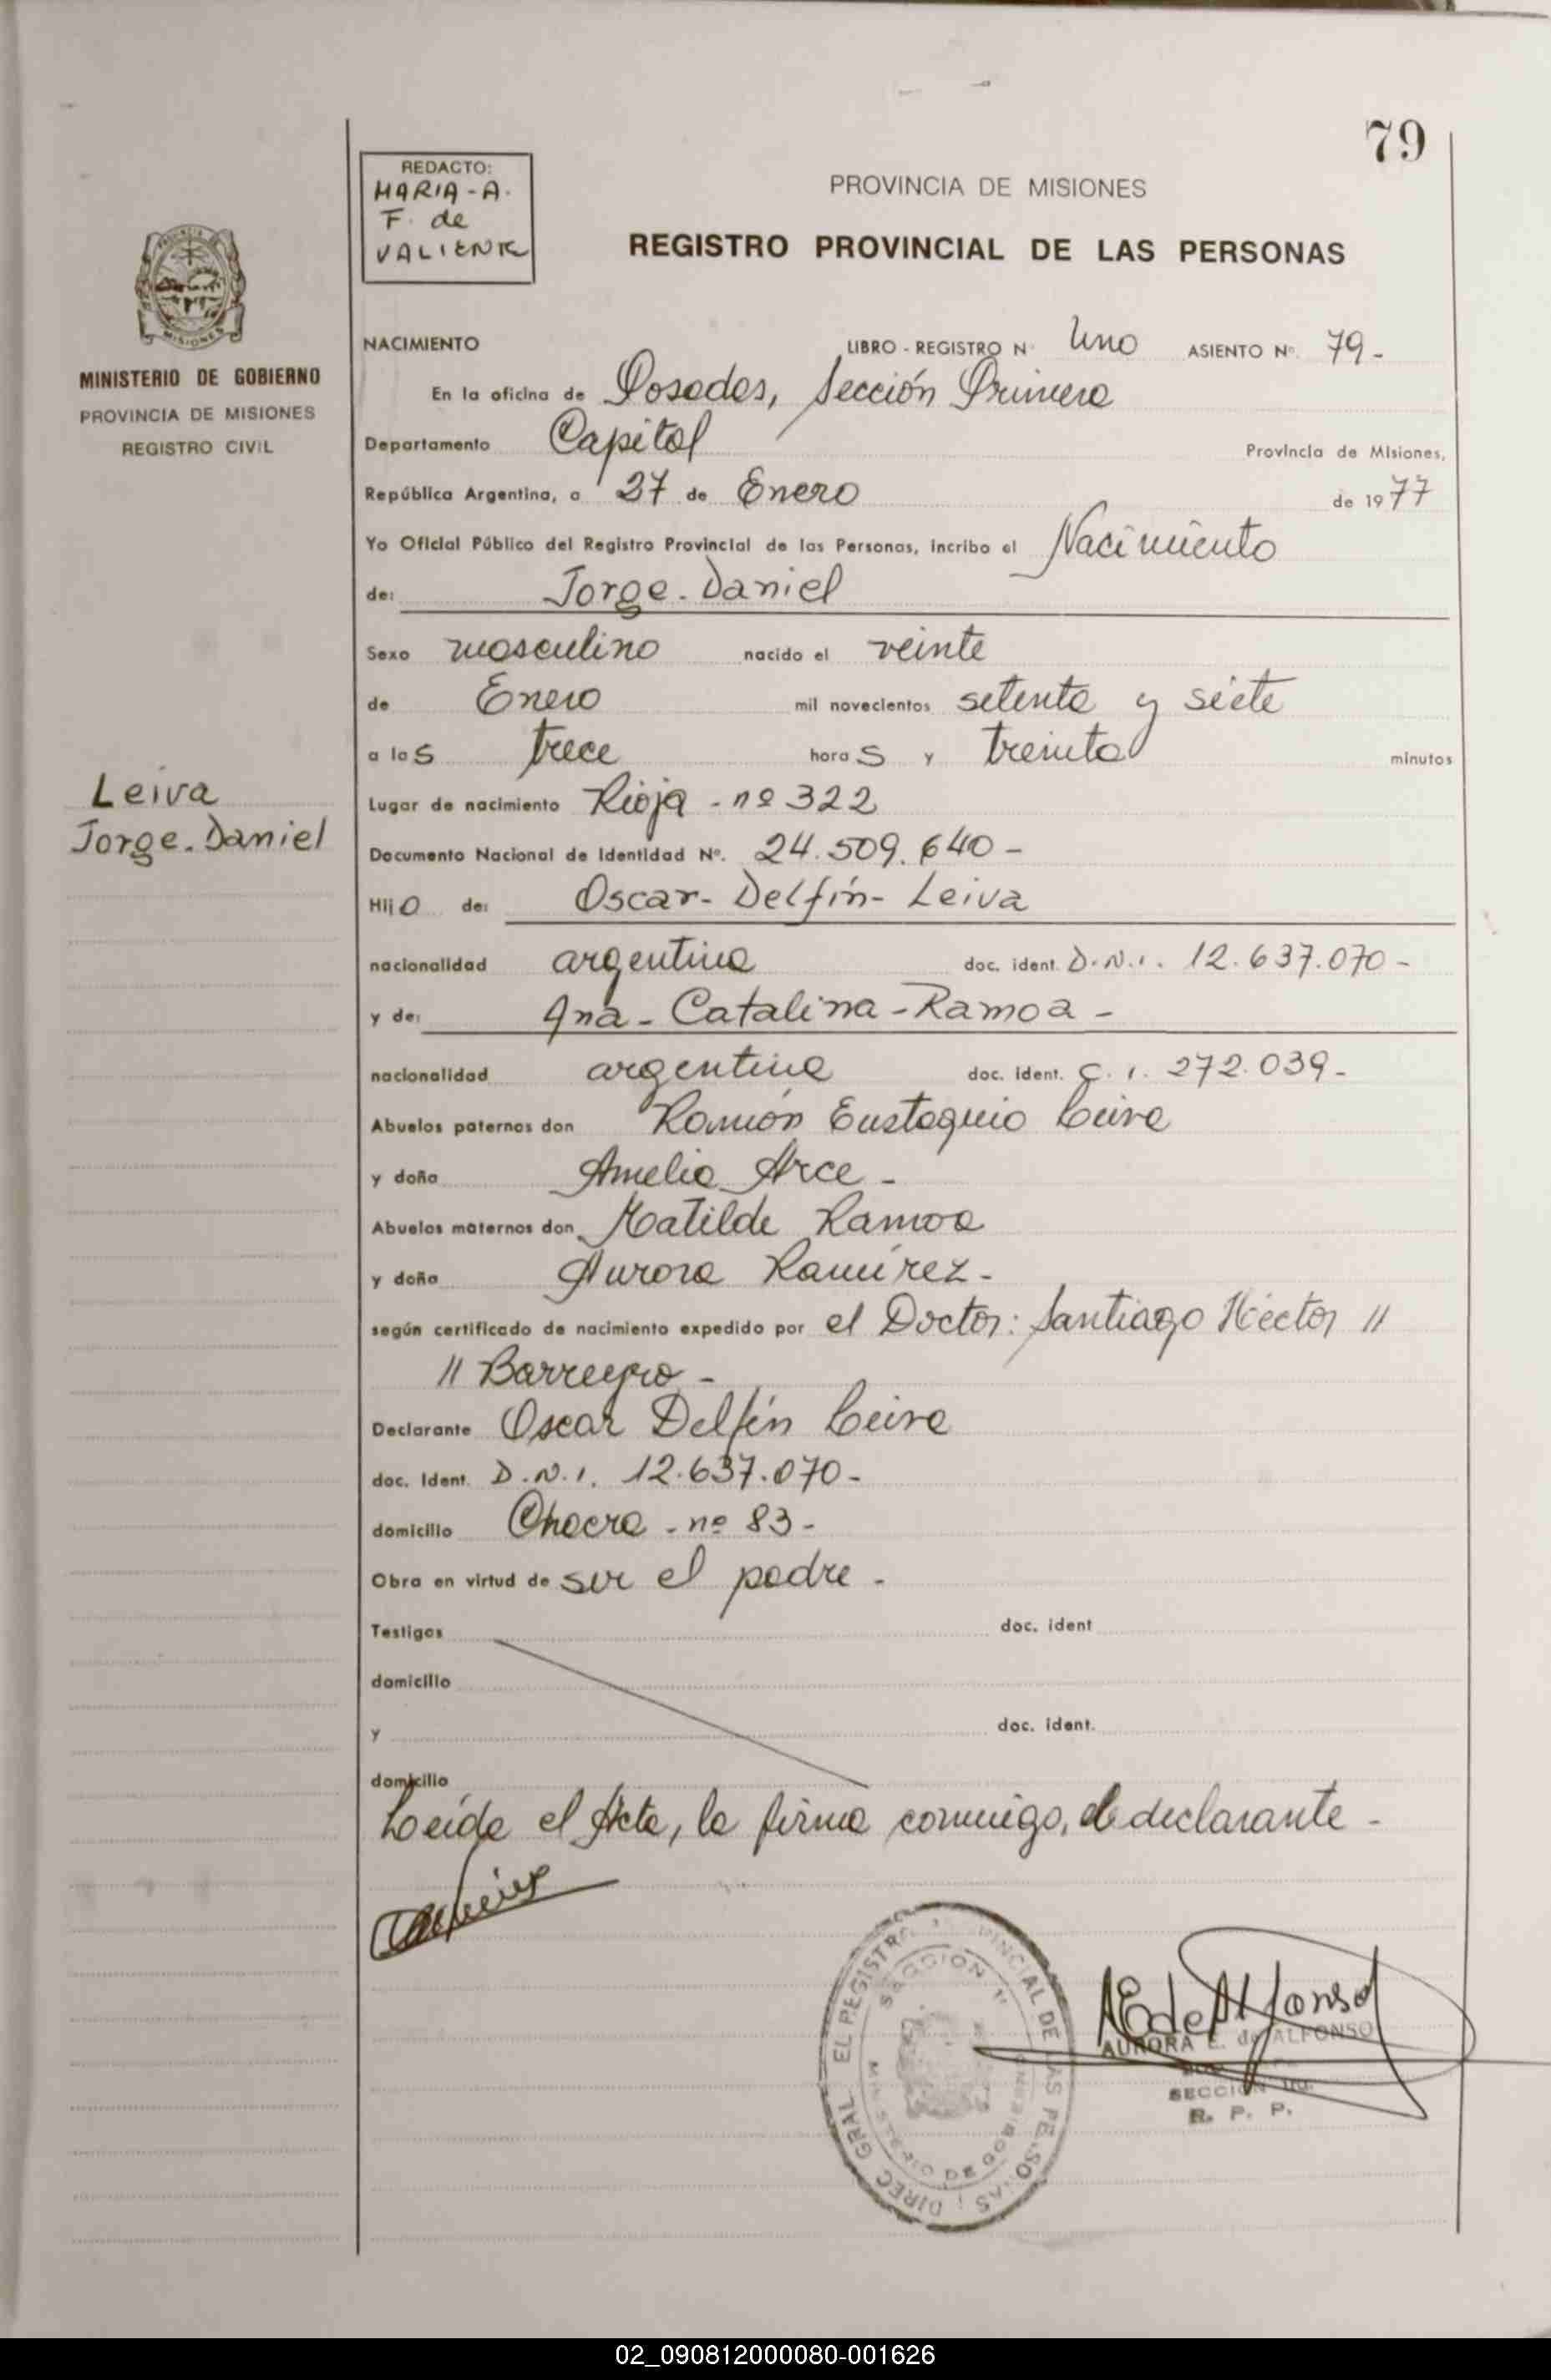 79
REDACTO:
MARIA-A.
F. de
VALIENTE
PROVINCIA DE MISIONES
REGISTRO PROVINCIAL DE LAS PERSONAS
MISIONES
MINISTERIO DE GOBIERNO
PROVINCIA DE MISIONES
REGISTRO CIVIL
Leiva
Jorge.Daniel
NACIMIENTO LIBRO - REGISTRO N° Uno ASIENTO N° 79-
En la oficina de Posadas, Sección Primera
Departamento Capital Provincia de Misiones,
República Argentina, a 27 de Enero de 1977
Yo Oficial Público del Registro Provincial de las Personas, incribo el Nacimiento
de: Jorge-Daniel
Sexo masculino nacido el veinte
de Enero mil novecientos setenta y siete
a las trece horas y treinta minutos
Lugar de nacimiento Rioja - nº 322
Documento Nacional de Identidad N°. 24.509.640-
Hijo de: Oscar- Delfín- Leiva
nacionalidad argentina doc. ident. D.N.I. 12.637.070-
y de: Ana- Catalina-Ramoa-
nacionalidad argentina doc. ident. C.I. 272.039-
Abuelos paternos don Ramón Eustaquio Leiva
y doña Amelia Arce-
Abuelos maternos don Matilde Ramoa
y doña Aurora Ramírez-
según certificado de nacimiento expedido por el Doctor: Santiago Héctor //
// Barreyro-
Declarante Oscar Delfín Leiva
doc. Ident. D.N.I. 12.637.070-
domicilio Chacra - nº 83-
Obra en virtud de ser el padre-
Testigos doc. ident
domicilio
y doc. ident.
domicilio
Leída el Acta, la firma conmigo, el declarante-
AEdeAlfonso
AURORA E. de ALFONSO
SECCION
R. P. P.
DIREC GRAL EL REGISTRO PROVINCIAL DE LAS PERSONAS
SECCION 1ª
MINISTERIO DE GOBIERNO
02_090812000080-001626